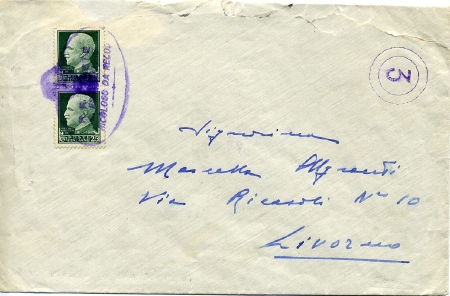 NICOLOSO DA RECCO
25
3
Signorina
Marcella
Via Ricasoli Nº 10
Livorno